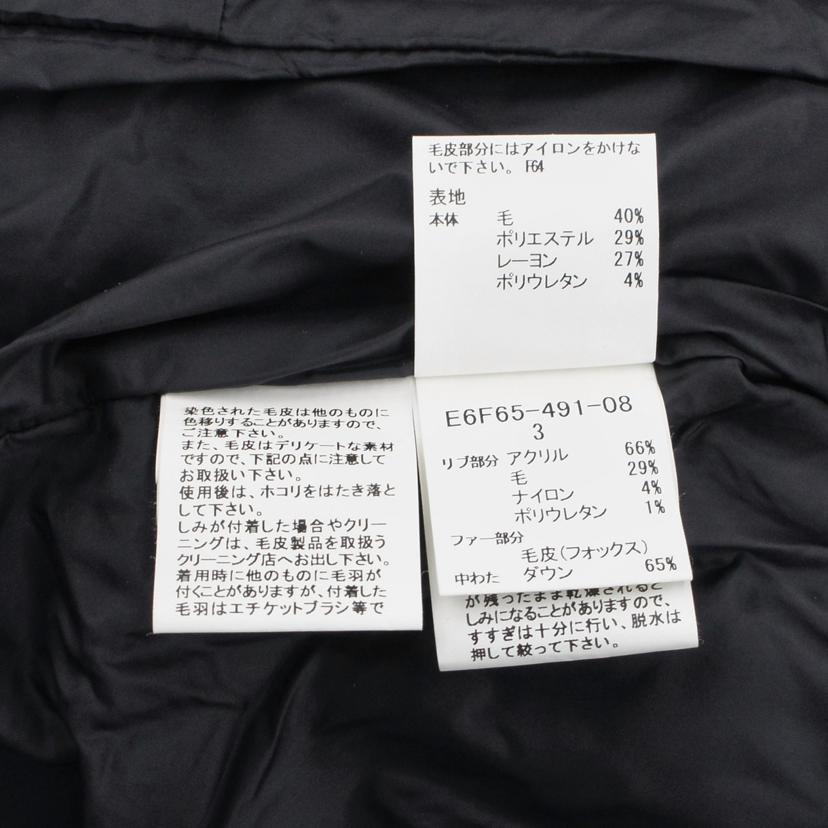 毛皮部分にはアイロンをかけな
いで下さい。 F64
表地
本体 毛 40%
ポリエステル 29%
レーヨン 27%
ポリウレタン 4%
染色された毛皮は他のものに
色移りすることがありますので、
ご注意下さい。
また、毛皮はデリケートな素材
ですので、下記の点に注意して
お取扱い下さい。
使用後は、ホコリをはたき落と
して下さい。
しみが付着した場合やクリー
ニングは、毛皮製品を取扱う
クリーニング店へお出し下さい。
着用時に他のものに毛羽が
付くことがありますが、付着した
毛羽はエチケットブラシ等で
E6F65-491-08
3
リブ部分 アクリル 66%
毛 29%
ナイロン 4%
ポリウレタン 1%
ファー部分
毛皮(フォックス)
中わた ダウン 65%
が残ったまま乾燥されると
しみになることがありますので、
すすぎは十分に行い、脱水は
押して絞って下さい。